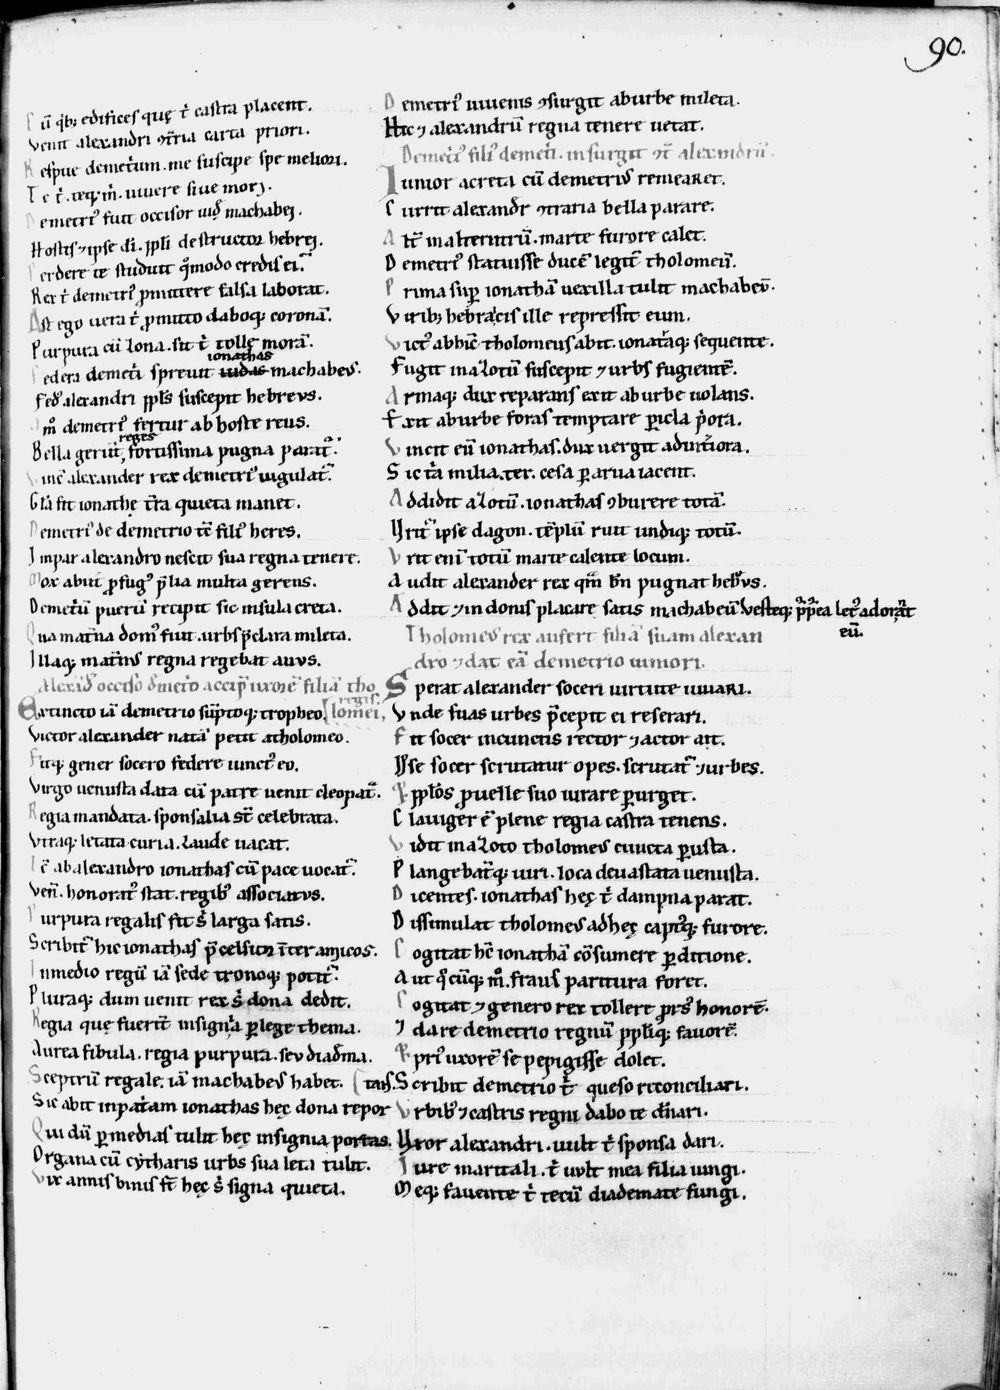 90.
Cū qͥbꝫ edifices quę t̄ castra placent.
Venit alexandri ↄtͥria carta priori.
Respue demetrium. me suscipe spe meliori.
Te t̄. teqꝫ m̄. uiuere siue morꝫ.
Demetriꝰ fuit occisor iudę machabei.
Hostis ⁊ ipse di. ppli destructor hebrei.
Perdere te studuit qͦmodo credis ei.
Rex t̄ demetriꝰ ꝓmittere falsa laborat.
Ast ego uera t̄ ꝓmitto daboqꝫ coronā.
Purpura cū zona. sit t̄ tolle morā.
ionathas
Federa demetri spreuit iudas machabeꝰ.
Fedꝰ alexandri ppl̄s suscepit hebreus.
Im̄ demetriꝰ fertur ab hoste reus.
reges
Bella gerūt, fortissima pugna paratͬ.
Vincͭ alexander rex demetriꝰ iugulatͬ.
Gl̄a fit ionathę tͬra quieta manet.
Demetriꝰ de demetrio tc̄ filiꝰ heres.
Impar alexandro nescit sua regna tenere.
Mox abiit ꝓfugꝰ p̄lia multa gerens.
Demetͥū puerū recipit sic insula creta.
Qua mat̄na domꝰ fuit. urbs p̄clara mileta.
Illaqꝫ mat̄nꝰ regna regebat auus.
Alexādͬ occiso demetͥo accipͭ uxorē filiā tho
regis.
lomei.
Extincto iā demetrio sūptoqꝫ tropheo.
Victor alexander natā petit a tholomeo.
Fitqꝫ gener socero federe iunctꝰ eo.
Virgo uenusta data cū patre uenit cleopatͬ.
Regia mandata. sponsalia st̄ celebrata.
Vtraqꝫ letata curia. laude uacat.
Ic̄ ab alexandro ionathas cū pace uocatͬ.
Ven̄. honoratꝰ stat. regibꝰ associatus.
Purpura regalis fit s̄ larga satis.
Scribitͬ hic ionathas p̄celsior īter amicos.
In medio regū iā sede tronoqꝫ potitͬ.
Pluraqꝫ dum uenit rex s̄ dona dedit.
Regia quę fuerīt insignͥa ꝑlege thema.
Aurea fibula. regia purpura. seu diadͤma.
Sceptrū regale. iā machabeꝰ habet. tans.
Sic abit in patͥam ionathas hęc dona repor
Qui dū ꝑ medias tulit hęc insignia portas.
Organa cū cytharis urbs sua leta tulit.
Vix annis binis fͭ hęc s̄ signa quieta.
Demetriꝰ iuuenis ↄsurgit ab urbe mileta.
Hic ⁊ alexandrū regna tenere uetat.
Demetͥꝰ filiꝰ demetͥi. insurgit ↄt̄ alexandrū.
Iunior a creta cū demetriꝰ remearet.
Currit alexandͬ ↄtraria bella parare.
Demetriꝰ statuisse ducē legitͬ tholomeū.
Prima suꝑ ionathā uexilla tulit machabeū.
Viribꝫ hebraicis ille repressit eum.
Victꝰ abhinc tholomeus abit. ionathaqꝫ sequente.
Fugit in azotū suscepit ⁊ urbs fugientē.
Armaqꝫ dux reparans exit ab urbe uolans.
Exit ab urbe foras temptare ꝑicla p̄ora.
Vincit eū ionathas. dux uergit ad ultͥiora.
Sic tͥa milia. ter. cesa ꝑ arua iacent.
Addidit azotū. ionathas ↄburere totā.
Vritͬ ipse dagon. tēplū ruit undiqꝫ totū.
Vrit enī totū marte calente locum.
Audit alexander rex qm̄ bn̄ pugnat hebꝰus.
Addit ⁊ in donis placare satis machabeū. Vesteqꝫ
eū.
Tholomeꝰ rex aufert filiā suam alexan
dro ⁊ dat eā demetrio iuniori.
Sperat alexander soceri uirtute iuuari.
Vnde suas urbes p̄cepit ei reserari.
Fit socer in cunctis rector ⁊ actor ait.
Ipse socer scrutatur opes. scrutatͬ ⁊ urbes.
pplōs ꝓ uelle suo iurare ꝑurget.
Clauiger ē plene regia castra tenens.
Vidit in azoto tholomeꝰ cuncta ꝑusta.
Plangebatͬqꝫ uiri. loca deuastata uenusta.
Dicentes. ionathas hęc t̄ dampna parat.
Dissimulat tholomeꝰ ad hęc capitͬqꝫ furore.
Cogitat hc̄ ionathā cōsumere ꝑditione.
Aut qͦcūqꝫ mͦ. fraus paritura foret.
Cogitat ⁊ genero rex tollere prsꝰ honorē.
⁊ dare demetrio regnū ppliqꝫ fauorē.
priꝰ uxorē se pepigisse dolet.
Scribit demetrio t̄ queso reconciliari.
Vrbibꝰ ⁊ castris regni dabo te dn̄ari.
Vxor alexandri. uult t̄ sponsa dari.
Iure maritali. t̄ uult mea filia iungi.
Meqꝫ fauente t̄ tecū diademate fungi.